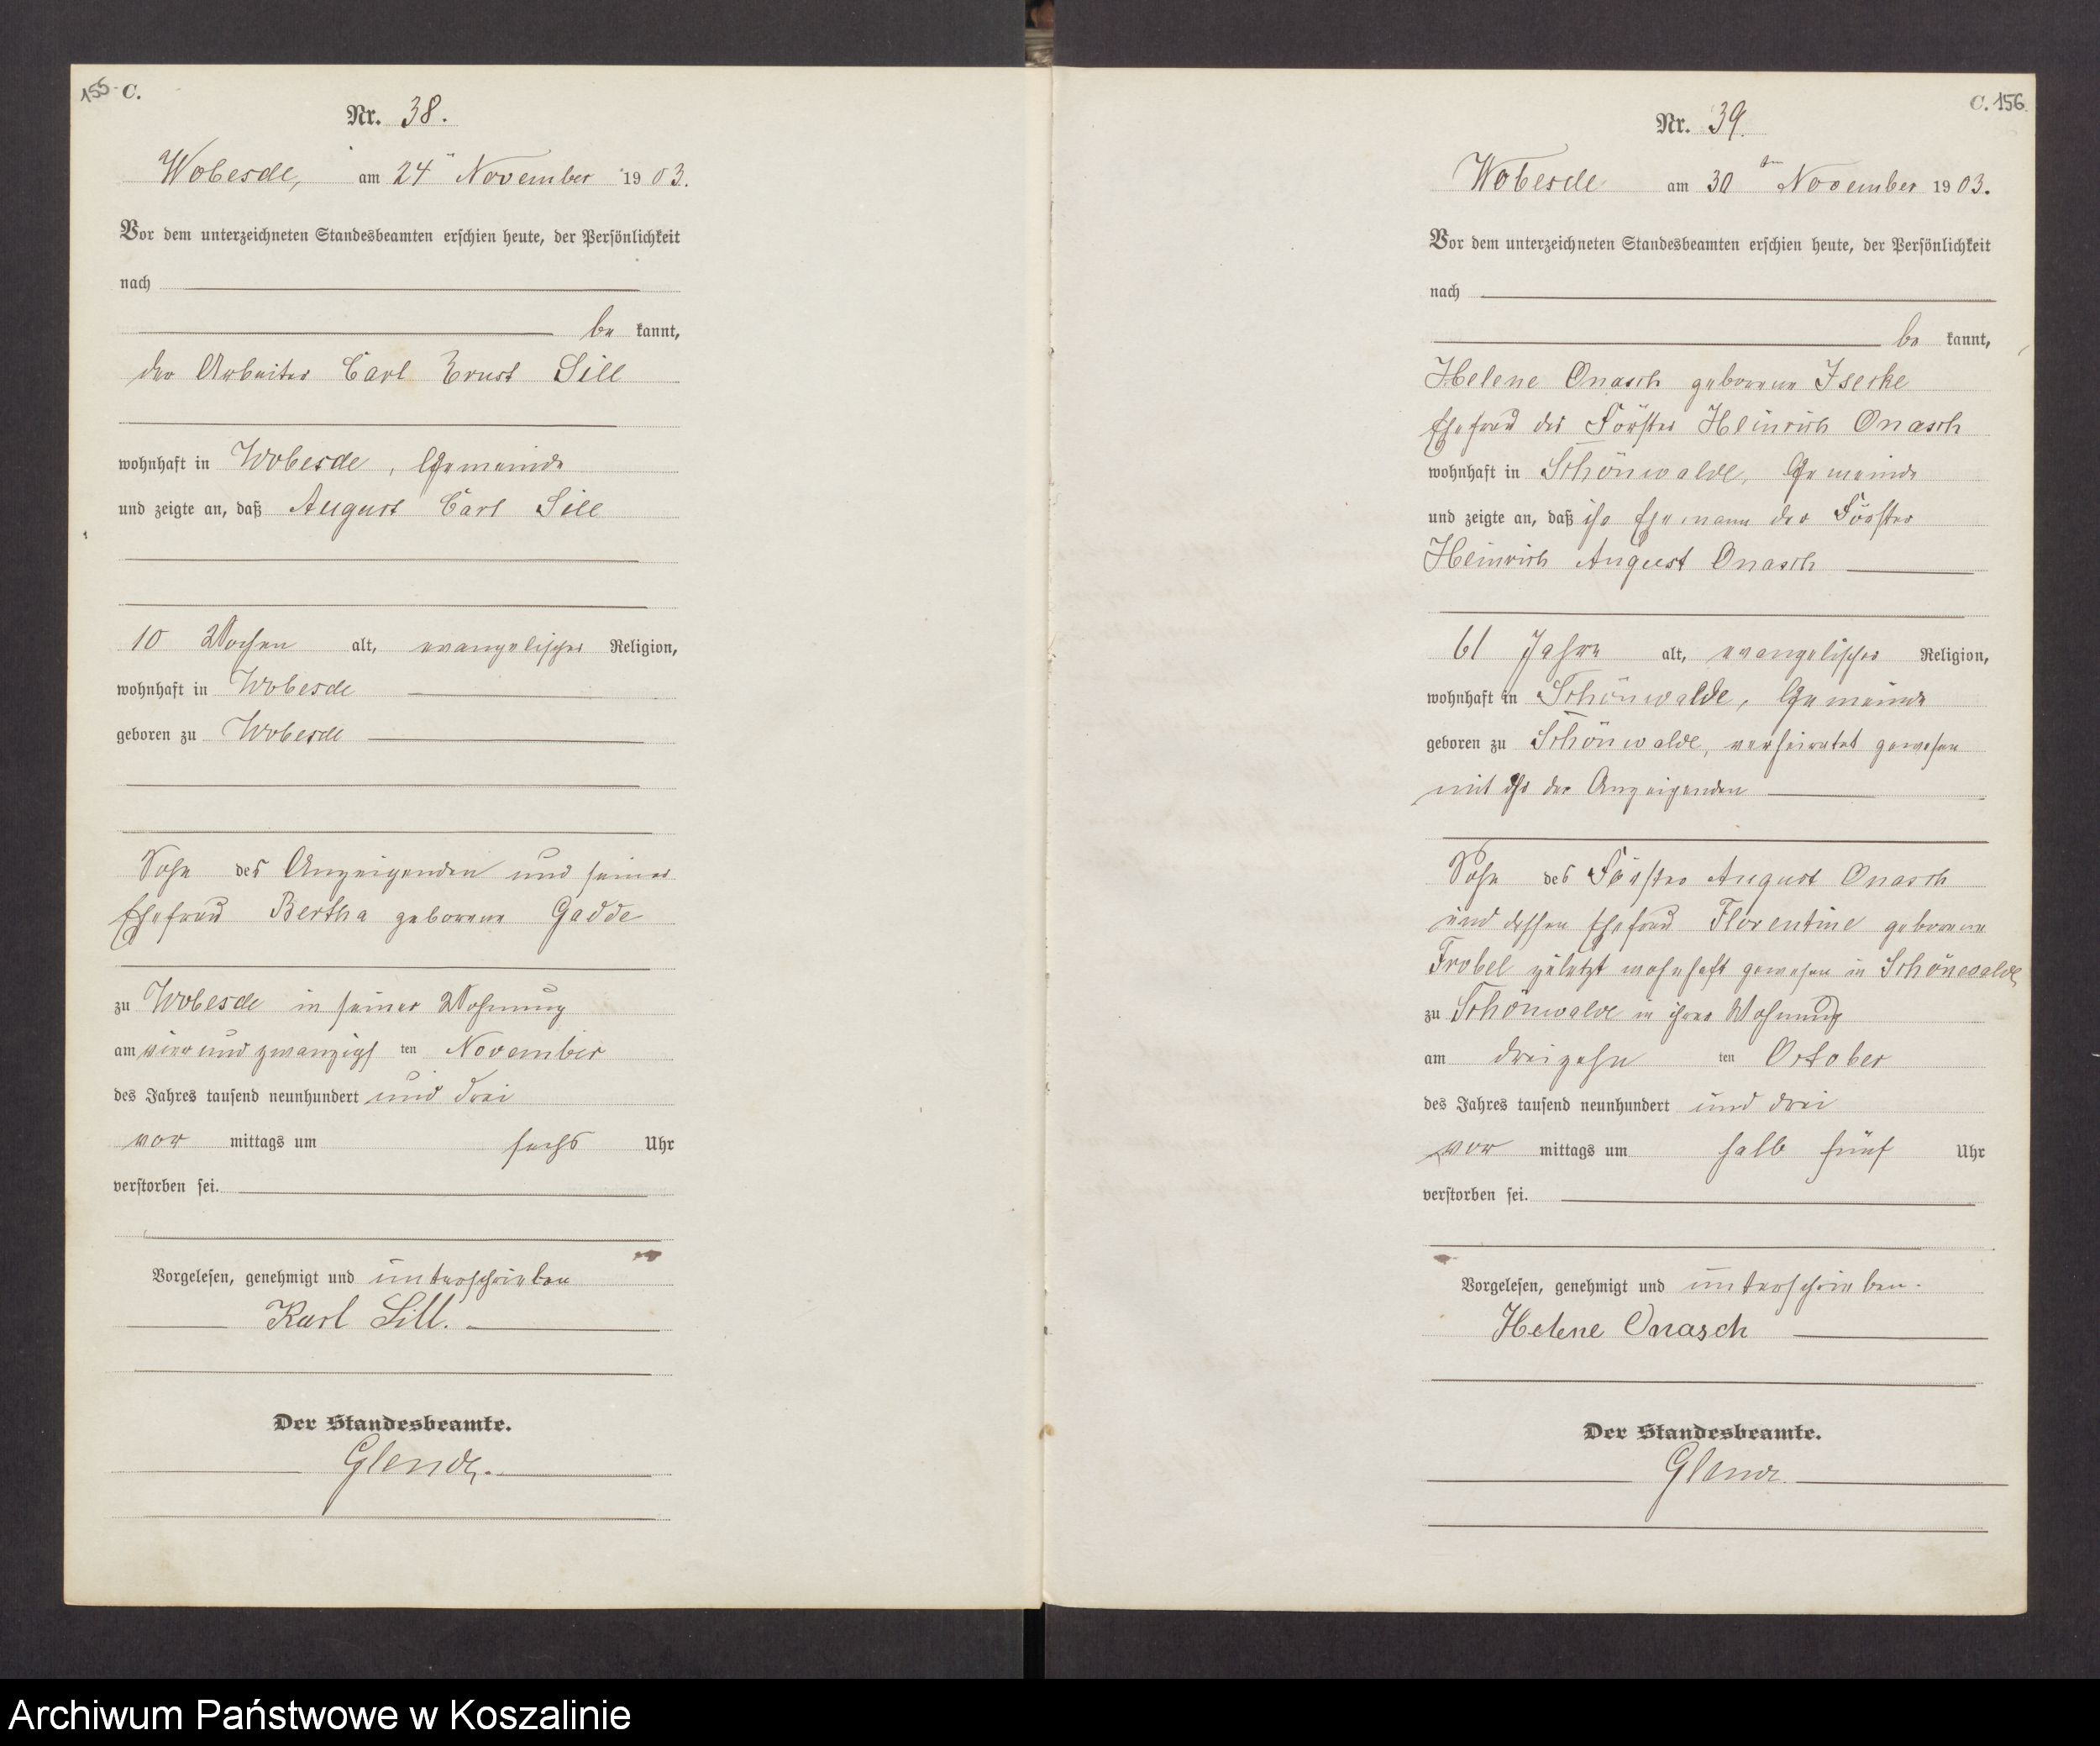 155 C.
Nr. 38.
Wobesde, am 24ten November 1903.
Vor dem unterzeichneten Standesbeamten erschien heute, der Persönlichkeit
nach
be kannt,
der Arbeiter Carl Ernst Sill
wohnhaft in Wobesde, Gemeinde
und zeigte an, daß August Carl Sill
10 Wochen alt, evangelischer Religion,
wohnhaft in Wobesde
geboren zu Wobesde
Sohn des Anzeigenden und seiner
Ehefrau Bertha geborene Gadde
zu Wobesde in seiner Wohnung
am vierundzwanzigsten November
des Jahres tausend neunhundert und drei
vor mittags um sechs Uhr
verstorben sei.
Vorgelesen, genehmigt und unterschrieben
Karl Sill.
Der Standesbeamte.
Glende.
C. 156.
Nr. 39.
Wobesde am 30ten November 1903.
Vor dem unterzeichneten Standesbeamten erschien heute, der Persönlichkeit
nach
be kannt,
Helene Onasch geborene Iseske
Ehefrau des Förster Heinrich Onasch
wohnhaft in Schönwalde, Gemeinde
und zeigte an, daß ihr Ehemann der Förster
Heinrich August Onasch
61 Jahre alt, evangelischer Religion,
wohnhaft in Schönwalde, Gemeinde
geboren zu Schönwalde, verheiratet gewesen
mit ihr der Anzeigenden
Sohn des Förster August Onasch
und dessen Ehefrau Florentine geborene
Frobel zuletzt wohnhaft gewesen in Schönewalde
zu Schönwalde in ihrer Wohnung
am dreizehn ten October
des Jahres tausend neunhundert und drei
vor mittags um halb fünf Uhr
verstorben sei.
Vorgelesen, genehmigt und unterschrieben.
Helene Onasch
Der Standesbeamte.
Glende.
Archiwum Państwowe w Koszalinie